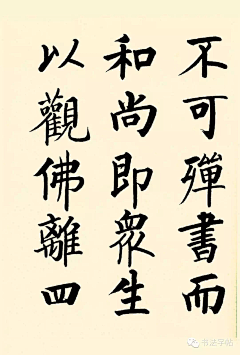 不可殫書而
和尚即眾生
以觀佛離四
书法字帖